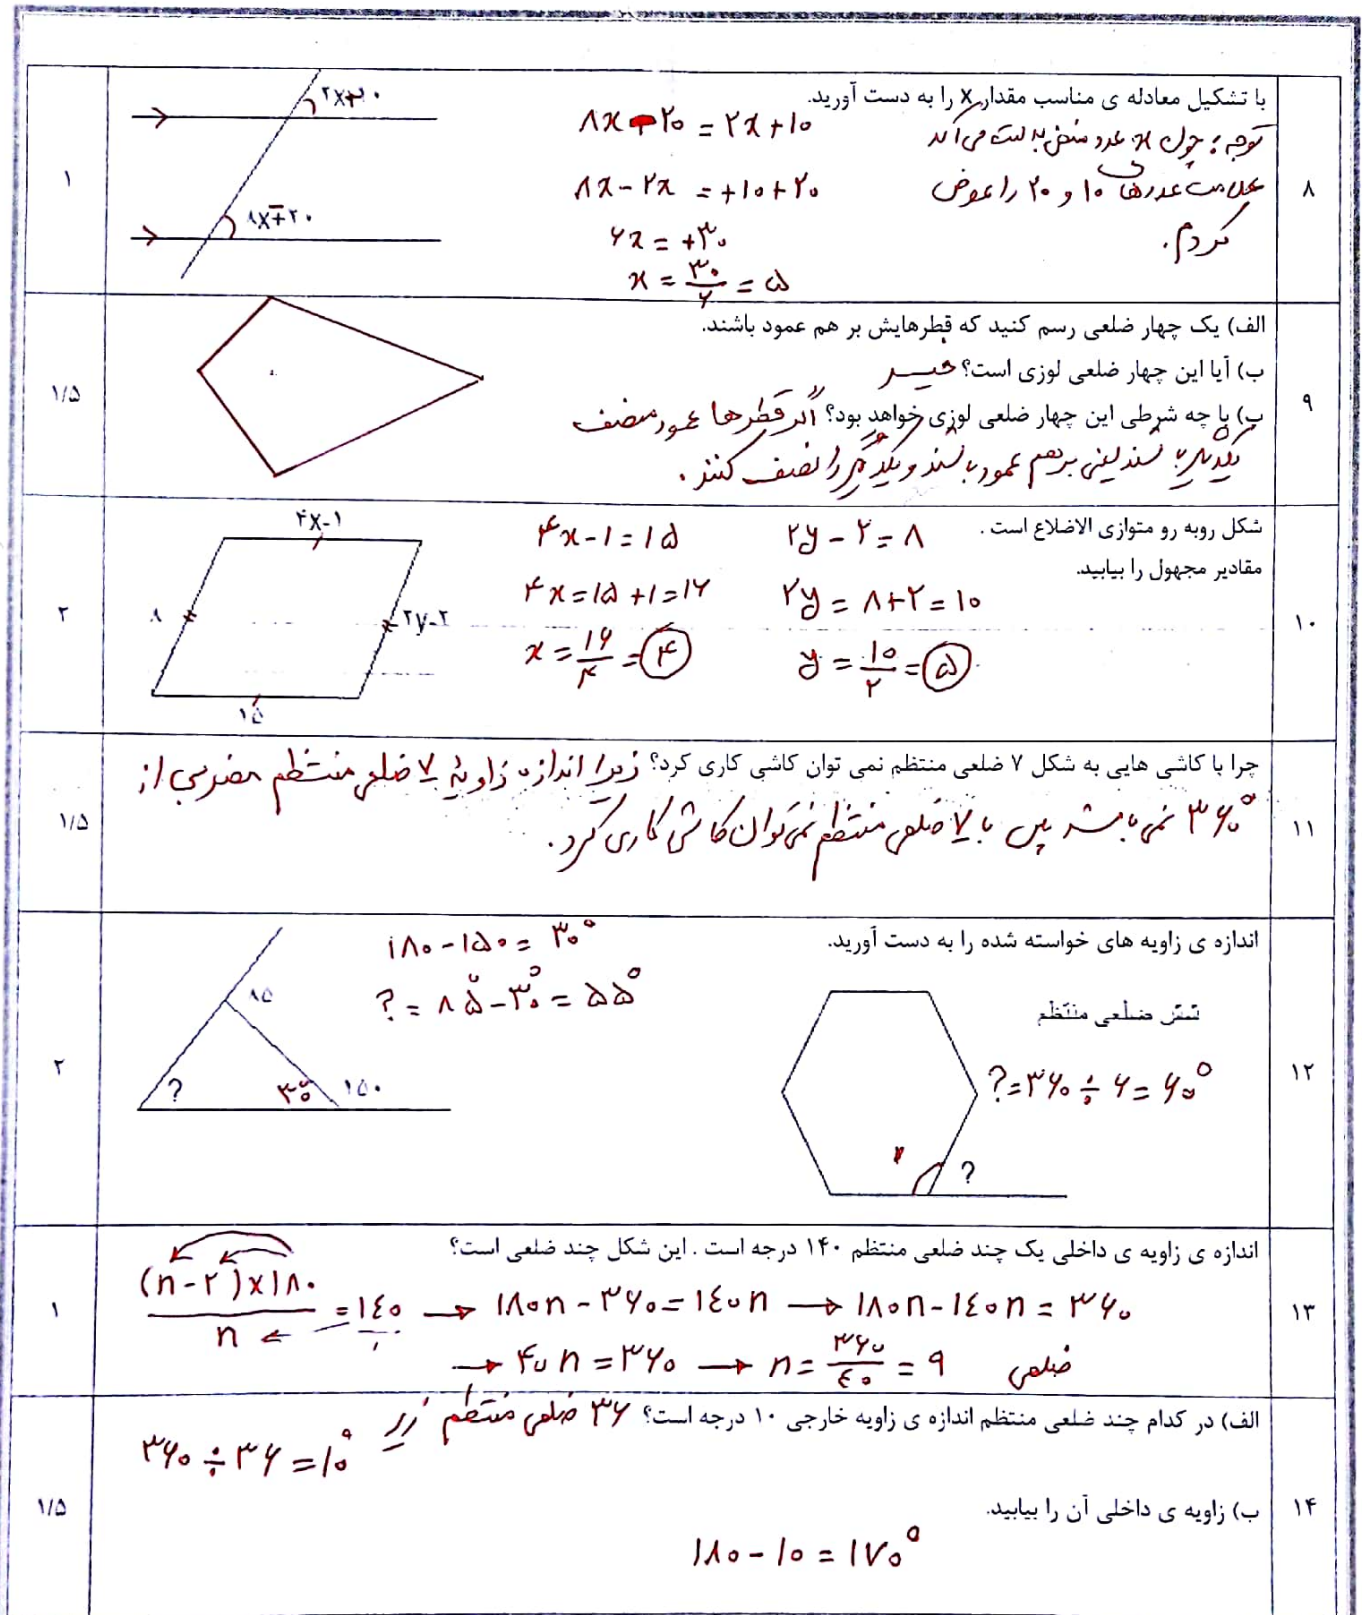 ۸
با تشکیل معادله ی مناسب مقدار x را به دست آورید.
توجه: چون x، عدد منفی به دست می آمد
علامت عددهای ۱۰ و ۲۰ را عوض
کردم.
۸x-۲۰ = ۲x+۱۰
۸x-۲x = +۱۰+۲۰
۶x = +۳۰
x = ۳۰/۶ = ۵
۲x+۱۰
۸x-۲۰
۱
۹
الف) یک چهار ضلعی رسم کنید که قطرهایش بر هم عمود باشند.
ب) آیا این چهار ضلعی لوزی است؟ خیر
پ) با چه شرطی این چهار ضلعی لوزی خواهد بود؟ اگر قطرها عمود منصف
یکدیگر باشند یعنی برهم عمود باشند و یکدیگر را نصف کنند.
۱/۵
۱۰
شکل روبه رو متوازی الاضلاع است.
مقادیر مجهول را بیابید.
۲y-۲=۸
۲y=۸+۲=۱۰
y=۱۰/۲=۵
۴x-۱=۱۵
۴x=۱۵+۱=۱۶
x=۱۶/۴=۴
۴x-۱
۸
۲y-۲
۱۵
۲
۱۱
چرا با کاشی هایی به شکل ۷ ضلعی منتظم نمی توان کاشی کاری کرد؟ زیرا اندازه زاویهٔ ۷ ضلعی منتظم مضربی از
۳۶۰° نمی باشد پس با ۷ ضلعی منتظم نمی توان کاشی کاری کرد.
۱/۵
۱۲
اندازه ی زاویه های خواسته شده را به دست آورید.
شش ضلعی منتظم
?=۳۶۰÷۶=۶۰°
?
۱۸۰-۱۵۰=۳۰°
?=۸۵°-۳۰°=۵۵°
۸۵
?
۳۰°
۱۵۰
۲
۱۳
اندازه ی زاویه ی داخلی یک چند ضلعی منتظم ۱۴۰ درجه است . این شکل چند ضلعی است؟
(n-۲)×۱۸۰/n = ۱۴۰/۱ → ۱۸۰n-۳۶۰=۱۴۰n → ۱۸۰n-۱۴۰n=۳۶۰
→ ۴۰n=۳۶۰ → n=۳۶۰/۴۰=۹ ضلعی
۱
۱۴
الف) در کدام چند ضلعی منتظم اندازه ی زاویه خارجی ۱۰ درجه است؟ ۳۶ ضلعی منتظم زیرا
۳۶۰÷۳۶=۱۰°
ب) زاویه ی داخلی آن را بیابید.
۱۸۰-۱۰=۱۷۰°
۱/۵